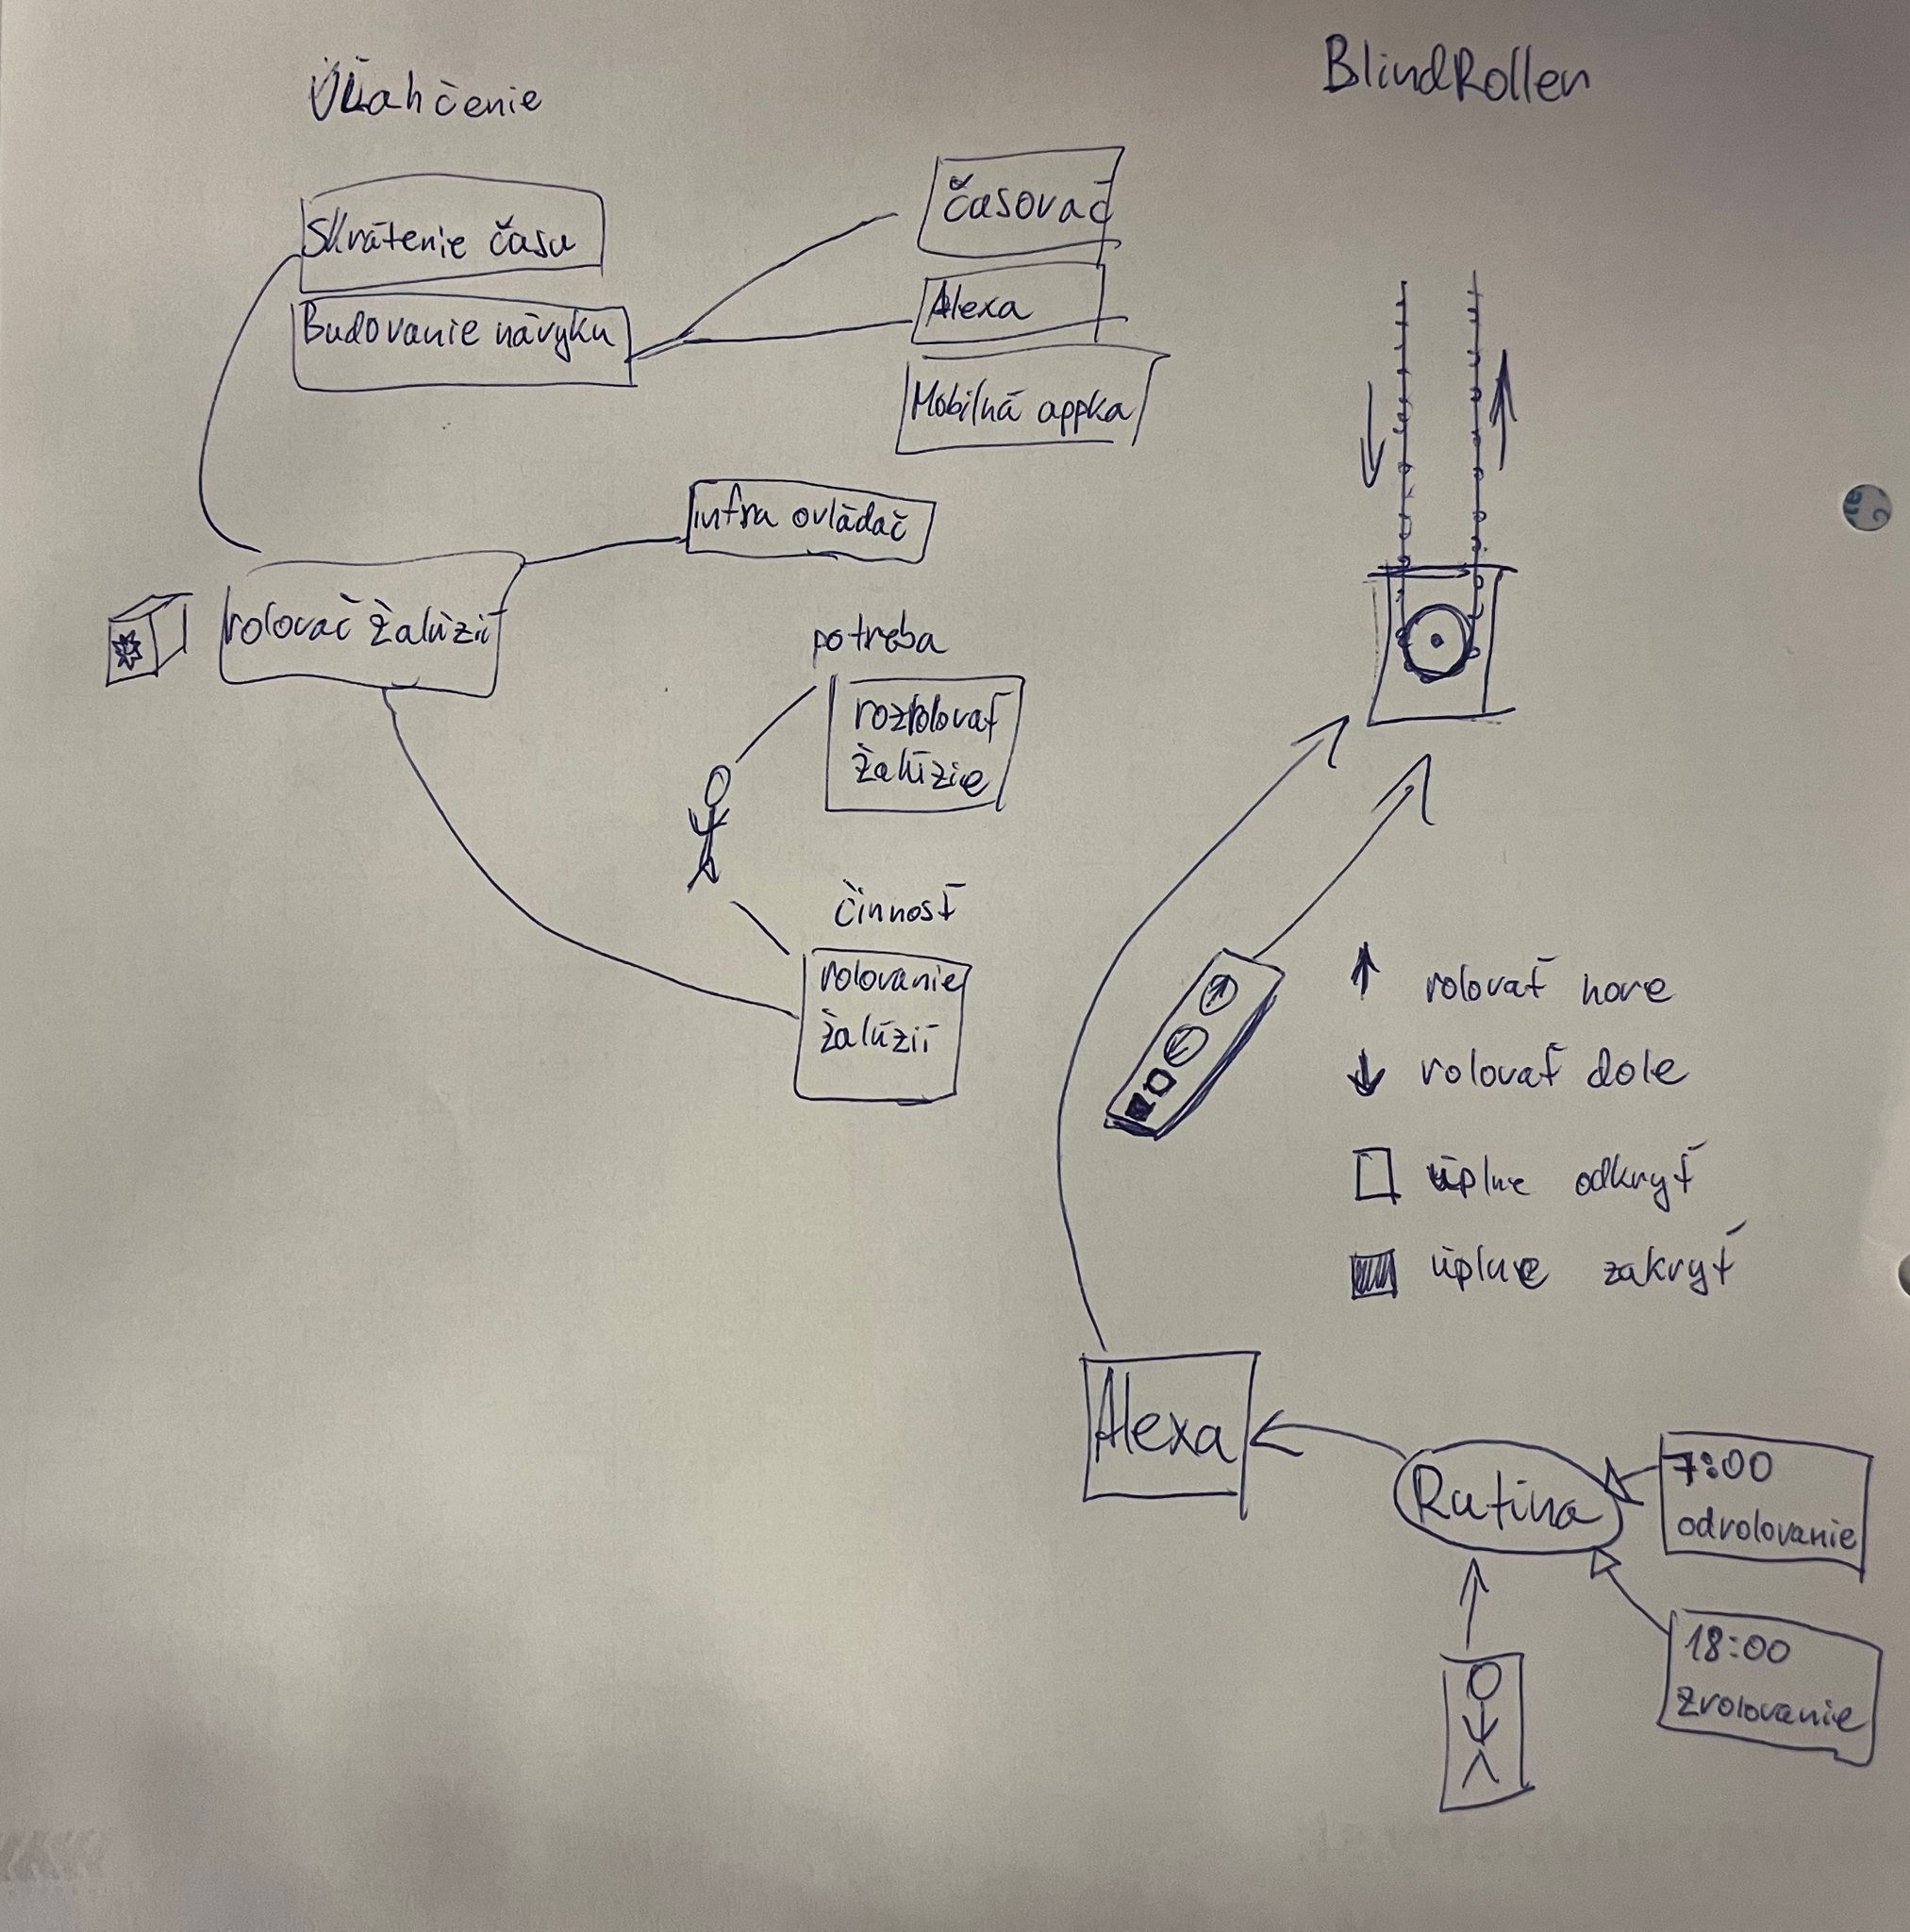 Uľahčenie
BlindRoller
Skrátenie času
Budovanie návyku
Časovač
Alexa
Mobilná appka
infra ovládač
rolovač žalúzií
potreba
rozrolovať
žalúzie
činnosť
rolovanie
žalúzií
rolovať hore
rolovať dole
úplne odkryť
úplne zakryť
Alexa
Rutina
7:00
odrolovanie
18:00
zrolovanie